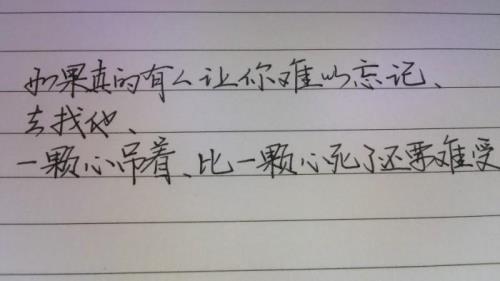 如果真的有人让你难以忘记、
去找他、
一颗心吊着、比一颗心死了还要难受